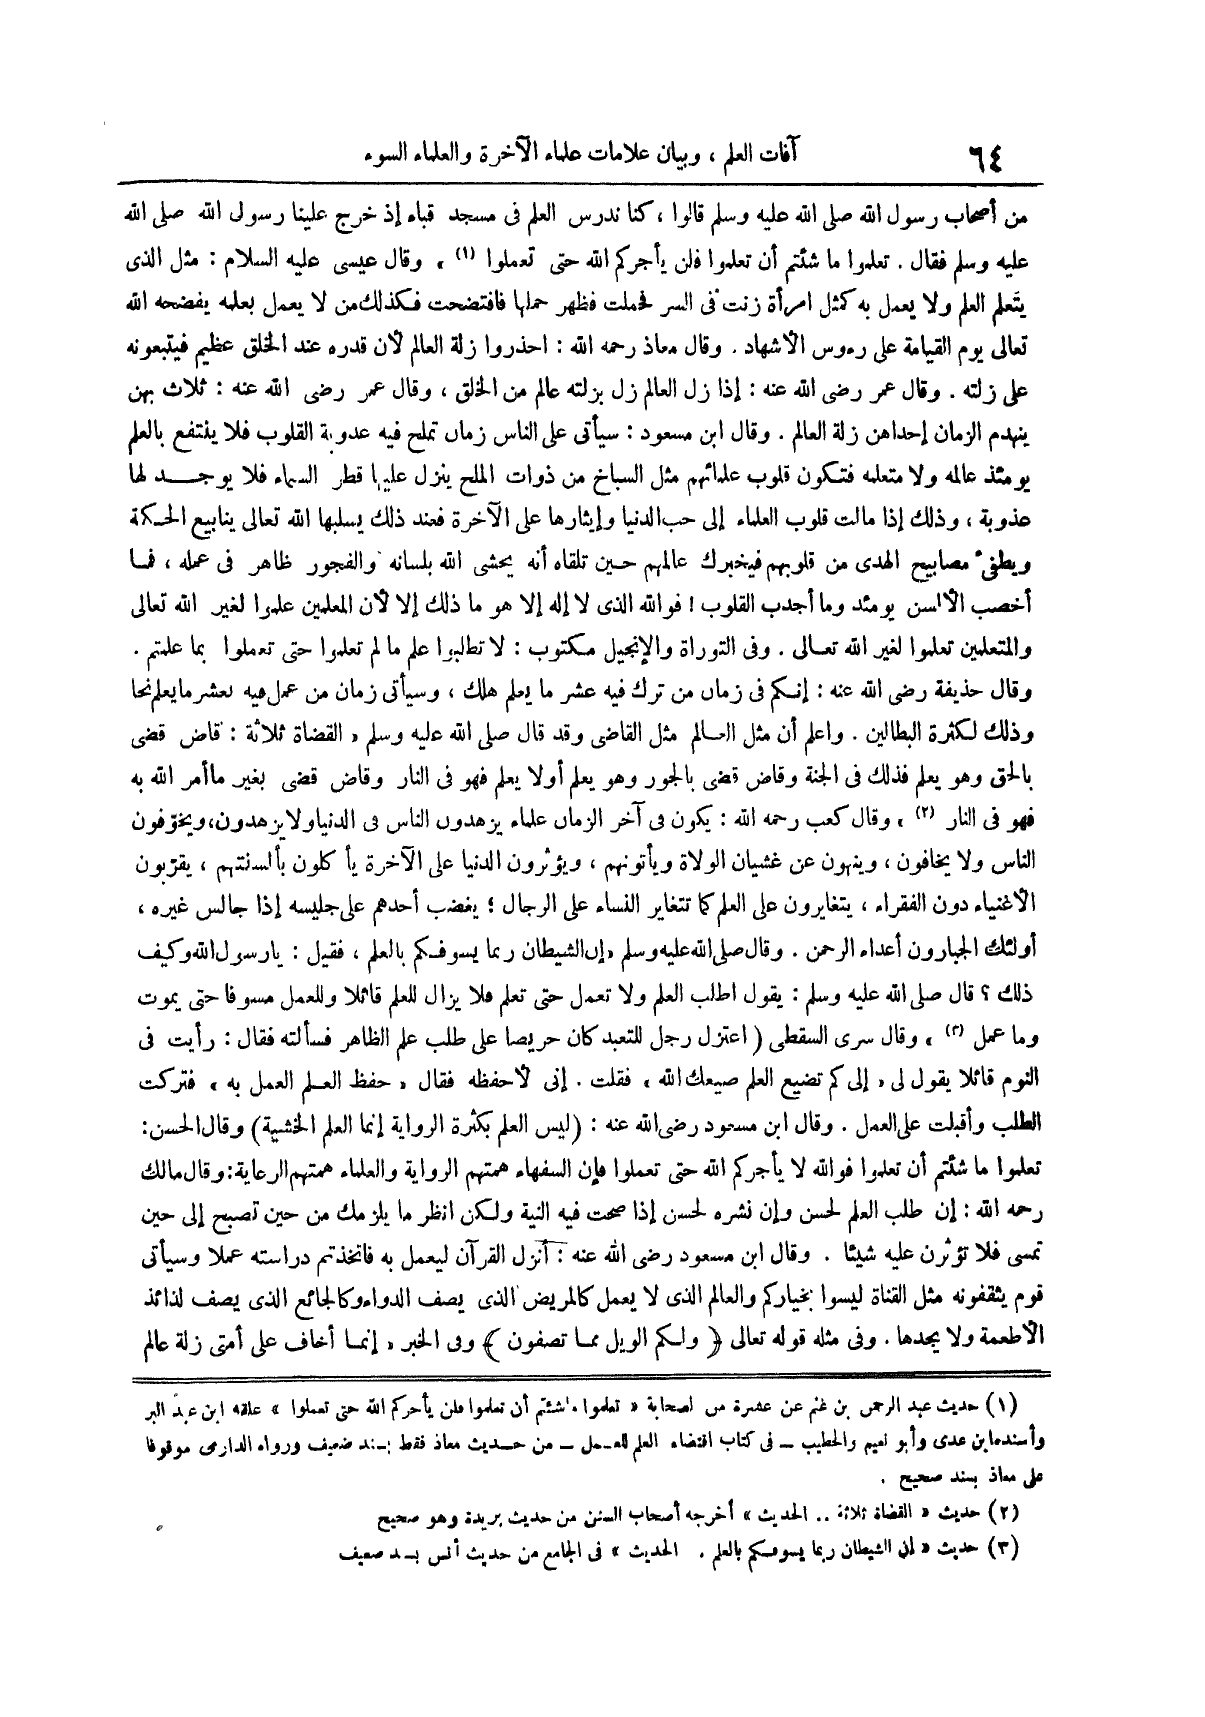 ٦٤
آفات العلم ، وبيان علامات علماء الآخرة والعلماء السوء
من أصحاب رسول الله صلى الله عليه وسلم قالوا ، كنا ندرس العلم فى مسجد قباء إذ خرج علينا رسولى الله صلى الله
عليه وسلم فقال . تعلموا ما شئتم أن تعلموا فلن يأجركم الله حتى تعملوا (١) ، وقال عيسى عليه السلام : مثل الذى
يتعلم العلم ولا يعمل به كمثل امرأة زنت فى السر فحملت فظهر حملها فافتضحت فكذلك من لا يعمل بعلمه يفضحه الله
تعالى يوم القيامة على رءوس الأشهاد . وقال معاذ رحمه الله : احذروا زلة العالم لأن قدره عند الخلق عظيم فيتبعونه
على زلته . وقال عمر رضى الله عنه : إذا زل العالم زل بزلته عالم من الخلق ، وقال عمر رضى الله عنه : ثلاث بهن
ينهدم الزمان إحداهن زلة العالم . وقال ابن مسعود : سيأتى على الناس زمان تملح فيه عدوبة القلوب فلا ينتفع بالعلم
يومئذ عالمه ولا متعلمه فتكون قلوب علمائهم مثل السباخ من ذوات الملح ينزل عليها قطر السماء فلا يوجد لها
عذوبة ، وذلك إذا مالت قلوب العلماء إلى حب الدنيا وإيثارها على الآخرة فعند ذلك يسلبها الله تعالى ينابيع الحكمة
ويطفئ مصابيح الهدى من قلوبهم فيخبرك عالمهم حين تلقاه أنه يخشى الله بلسانه والفجور ظاهر فى عمله ، فما
أخصب الألسن يومئذ وما أجدب القلوب ! فوالله الذى لا إله إلا هو ما ذلك إلا لأن المعلمين علموا لغير الله تعالى
والمتعلمين تعلموا لغير الله تعالى . وفى التوراة والإنجيل مكتوب : لا تطلبوا علم ما لم تعلموا حتى تعملوا بما علمتم .
وقال حذيفة رضى الله عنه : إنكم فى زمان من ترك فيه عشر ما يعلم هلك ، وسيأتى زمان من عمل فيه بعشر ما يعلم نجا
وذلك لكثرة البطالين . واعلم أن مثل العالم مثل القاضى وقد قال صلى الله عليه وسلم « القضاة ثلاثة : قاض قضى
بالحق وهو يعلم فذلك فى الجنة وقاض قضى بالجور وهو يعلم أولا يعلم فهو فى النار وقاض قضى بغير ماأمر الله به
فهو فى النار (٢) ، وقال كعب رحمه الله : يكون فى آخر الزمان علماء يزهدون الناس فى الدنيا ولا يزهدون ، ويخوّفون
الناس ولا يخافون ، وينهون عن غشيان الولاة ويأتونهم ، ويؤثرون الدنيا على الآخرة يأكلون بألسنتهم ، يقرّبون
الأغنياء دون الفقراء ، يتغايرون على العلم كما تتغاير النساء على الرجال ؛ يغضب أحدهم على جليسه إذا جالس غيره ،
أولئك الجبارون أعداء الرحمن . وقال صلى الله عليه وسلم «إن الشيطان ربما يسوفكم بالعلم ، فقيل : يارسول الله وكيف
ذلك ؟ قال صلى الله عليه وسلم : يقول اطلب العلم ولا تعمل حتى تعلم فلا يزال للعلم قائلا وللعمل مسوفا حتى يموت
وما عمل (٣) ، وقال سرى السقطى ( اعتزل رجل للتعبد كان حريصا على طلب علم الظاهر فسألته فقال : رأيت فى
النوم قائلا يقول لى « إلى كم تضيع العلم ضيعك الله ، فقلت . إنى لأحفظه فقال « حفظ العلم العمل به ، فتركت
الطلب وأقبلت على العمل . وقال ابن مسعود رضى الله عنه : (ليس العلم بكثرة الرواية إنما العلم الخشية) وقال الحسن :
تعلموا ما شئتم أن تعلموا فوالله لا يأجركم الله حتى تعملوا فإن السفهاء همتهم الرواية والعلماء همتهم الرعاية : وقال مالك
رحمه الله : إن طلب العلم لحسن وإن نشره لحسن إذا صحت فيه النية ولكن انظر ما يلزمك من حين تصبح إلى حين
تمسى فلا تؤثرن عليه شيئا . وقال ابن مسعود رضى الله عنه : أنزل القرآن ليعمل به فاتخذتم دراسته عملا وسيأتى
قوم يثقفونه مثل القناة ليسوا بخياركم والعالم الذى لا يعمل كالمريض الذى يصف الدواء وكالجائع الذى يصف لذائذ
الأطعمة ولا يجدها . وفى مثله قوله تعالى ﴿ ولكم الويل مما تصفون ﴾ وفى الخبر « إنما أخاف على أمتى زلة عالم
(١) حديث عبد الرحمن بن غنم عن عشرة من الصحابة « تعلموا ما شئتم أن تعلموا فلن يأجركم الله حتى تعملوا » علقه ابن عبد البر
وأسنده ابن عدى وأبو نعيم والخطيب – فى كتاب اقتضاء العلم للعمل – من حديث معاذ فقط بسند ضعيف ورواه الدارمى موقوفا
على معاذ بسند صحيح .
(٢) حديث « القضاة ثلاثة .. الحديث » أخرجه أصحاب السنن من حديث بريدة وهو صحيح
(٣) حديث « إن الشيطان ربما يسوفكم بالعلم . الحديث » فى الجامع من حديث أنس بسند ضعيف